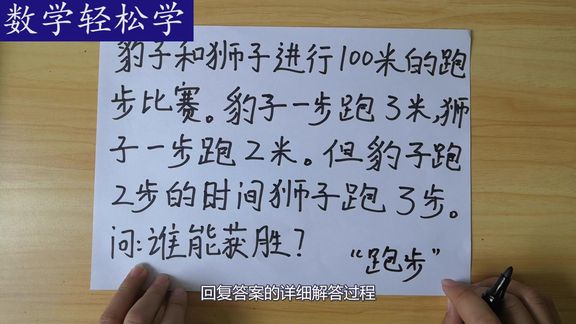 数学轻松学
豹子和狮子进行100米的跑
步比赛。豹子一步跑3米,狮
子一步跑2米。但豹子跑
2步的时间狮子跑3步。
问:谁能获胜?
“跑步”
回复答案的详细解答过程